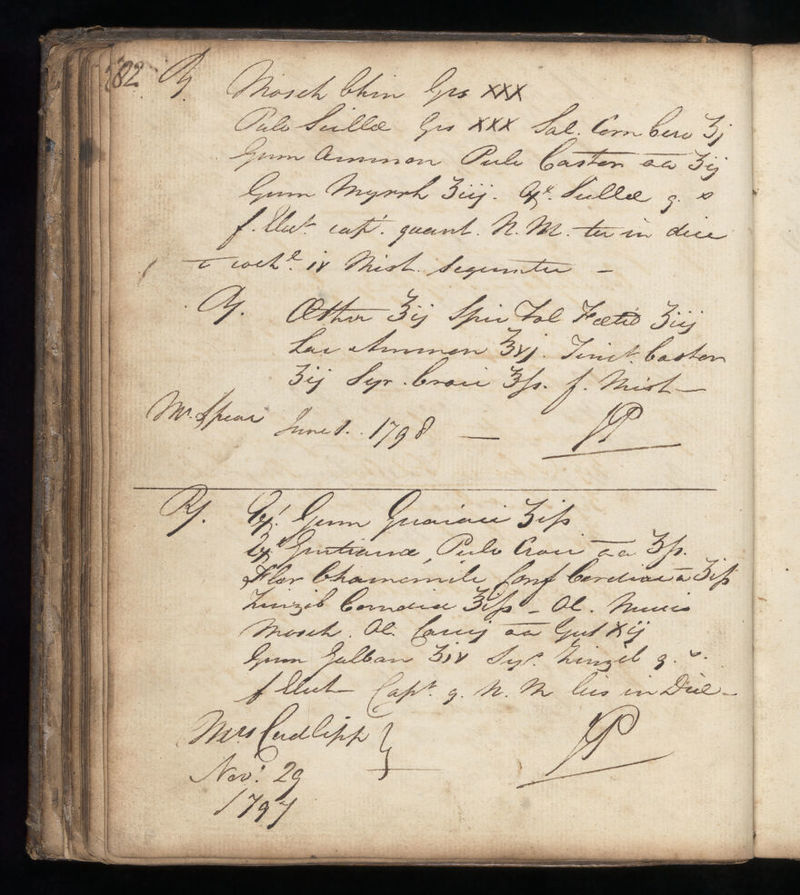 182
℞ Mosch Chin Grs xxx
Pulv Scillæ Grs xxx Sal. Corn Cerv ʒj
Gum Ammon Pulv Castor aa ʒij
Gum Myrrh ʒiij. Scillæ q. s
f. Elect. capt. quant. N. M. ter in die
c cochl. iv Mist. sequente –
℞. Æther ʒij Spir Vol Fœtid ʒiij
Lac Ammon ʒvj. Tinct. Castor
ʒij Syr. Croci ʒſs. f. Mist –
Mr. Spear June 1. 1798 — JP
℞. Gum Guaiaci ʒiſs
Gentianæ, Pulv Croci aa ʒſs.
Flor Chamomile Conf Cardiac a ʒiſs
Zinzib Condid ʒiſs – Ol. Nucis
Mosch. Ol. Caruj aa Gut xij
Gum Galban ʒiv Syr. Zinzib q. s.
f Elect – Capt. q. N. M. bis in Die –
Mrs Cudlipp } — JP
Novr. 29
1797